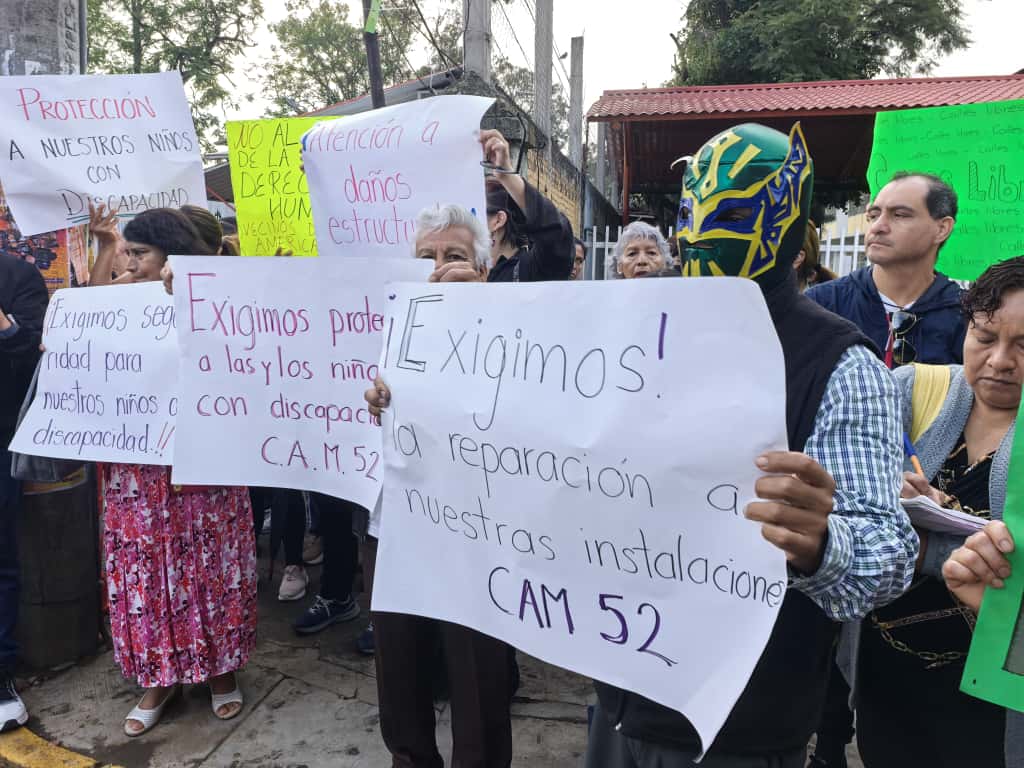 PROTECCIÓN
A NUESTROS NIÑOS
CON
DISCAPACIDAD
NO AL
DE LA
DERE
HUM
VECINOS DE
AMERICA
Atención a
daños
estructu
¡Exigimos segu
ridad para
nuestros niños
discapacidad.!!
Exigimos prote
a las y los niño
con discapacid
C.A.M. 52
¡Exigimos!
la reparación a
nuestras instalaciones
CAM 52
Calles libres
Libre